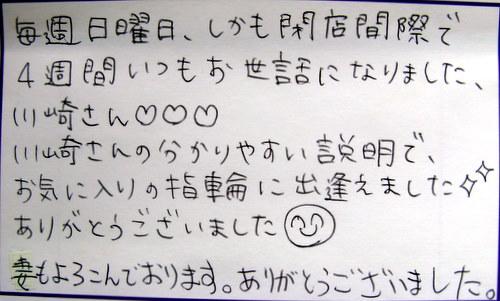 毎週日曜日、しかも閉店間際で
4週間いつもお世話になりました、
川崎さん♡♡♡
川崎さんの分かりやすい説明で、
お気に入りの指輪に出逢えました✧✧
ありがとうございました
妻もよろこんでおります。ありがとうございました。